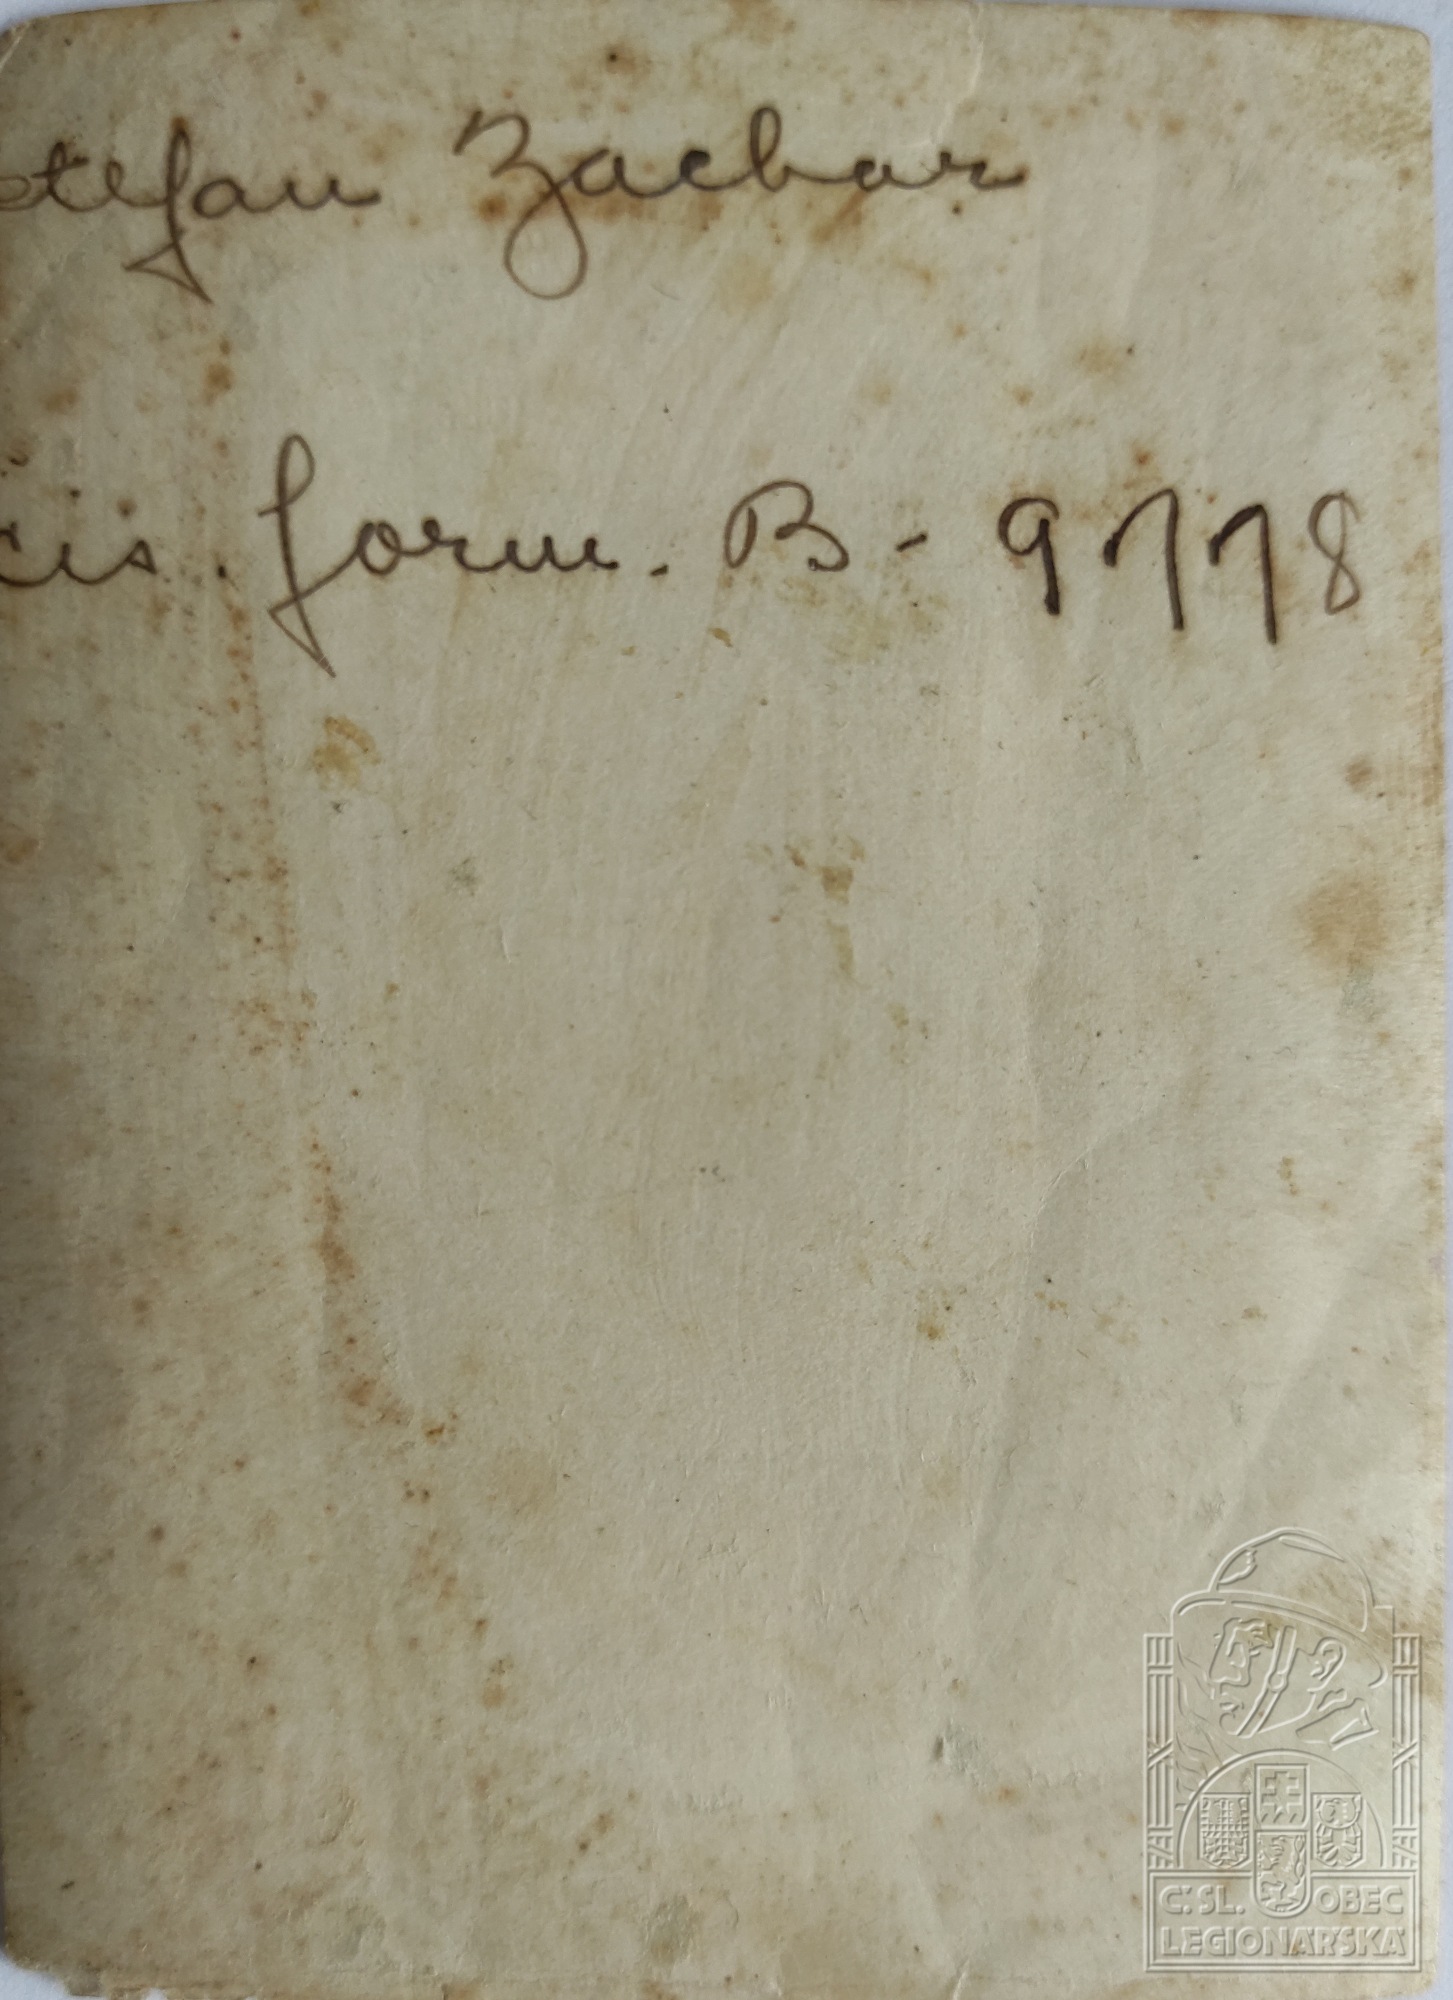 Štefan Zachar
čís. form. B - 9778
Č.SL. OBEC
LEGIONÁŘSKÁ